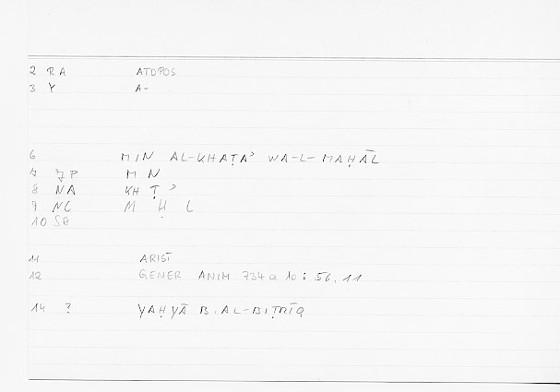 2 RA ATOPOS
3 Y A-
6 MIN AL-KHAṬAʾ WA-L-MAḤĀL
7 JP M N
8 NA KH Ṭ ʾ
9 NC M Ḥ L
10 SB
11 ARIST
12 GENER ANIM 734 a 10 : 56.11
14 ? YAḤYĀ B. AL-BIṬRĪQ